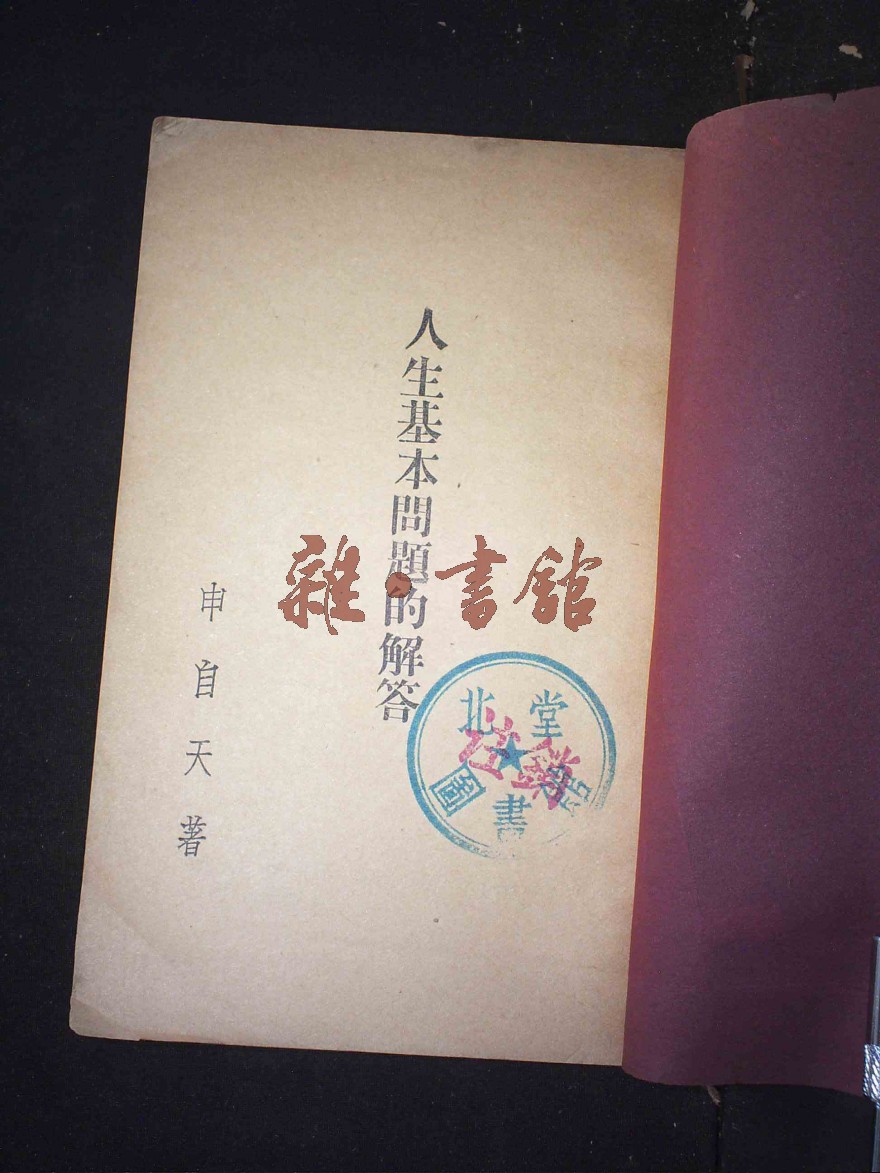 人生基本問題的解答
申自天著
雜·書館
北堂
圖書館
注銷